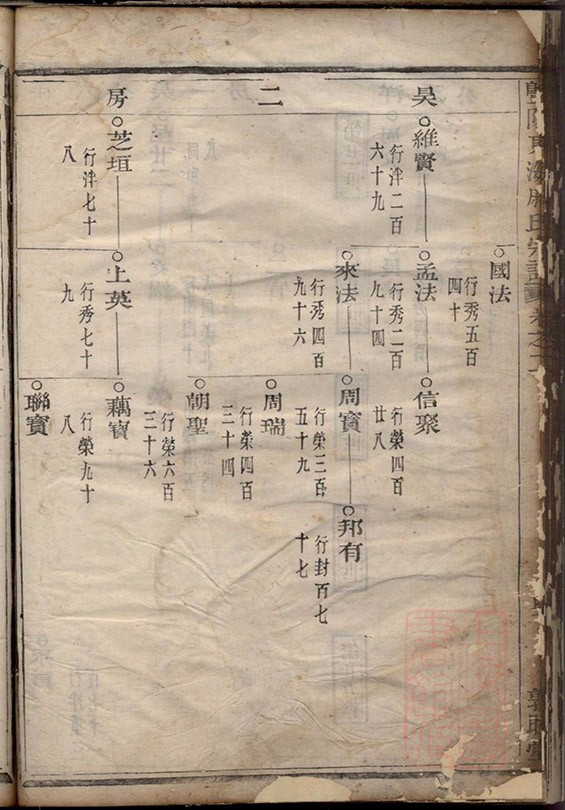 國法
行秀五百
四十
昊
二
房
維賢
行泮二百
六十九
孟法
行秀二百
九十四
信聚
行榮四百
廿八
來法
行秀四百
九十六
周寶
行榮三百
五十九
邦有
行封百七
十七
周瑞
行榮四百
三十四
朝聖
行榮六百
三十六
芝垣
行泮七十
八
上英
行秀七十
九
藕寶
行榮九十
八
聯寶